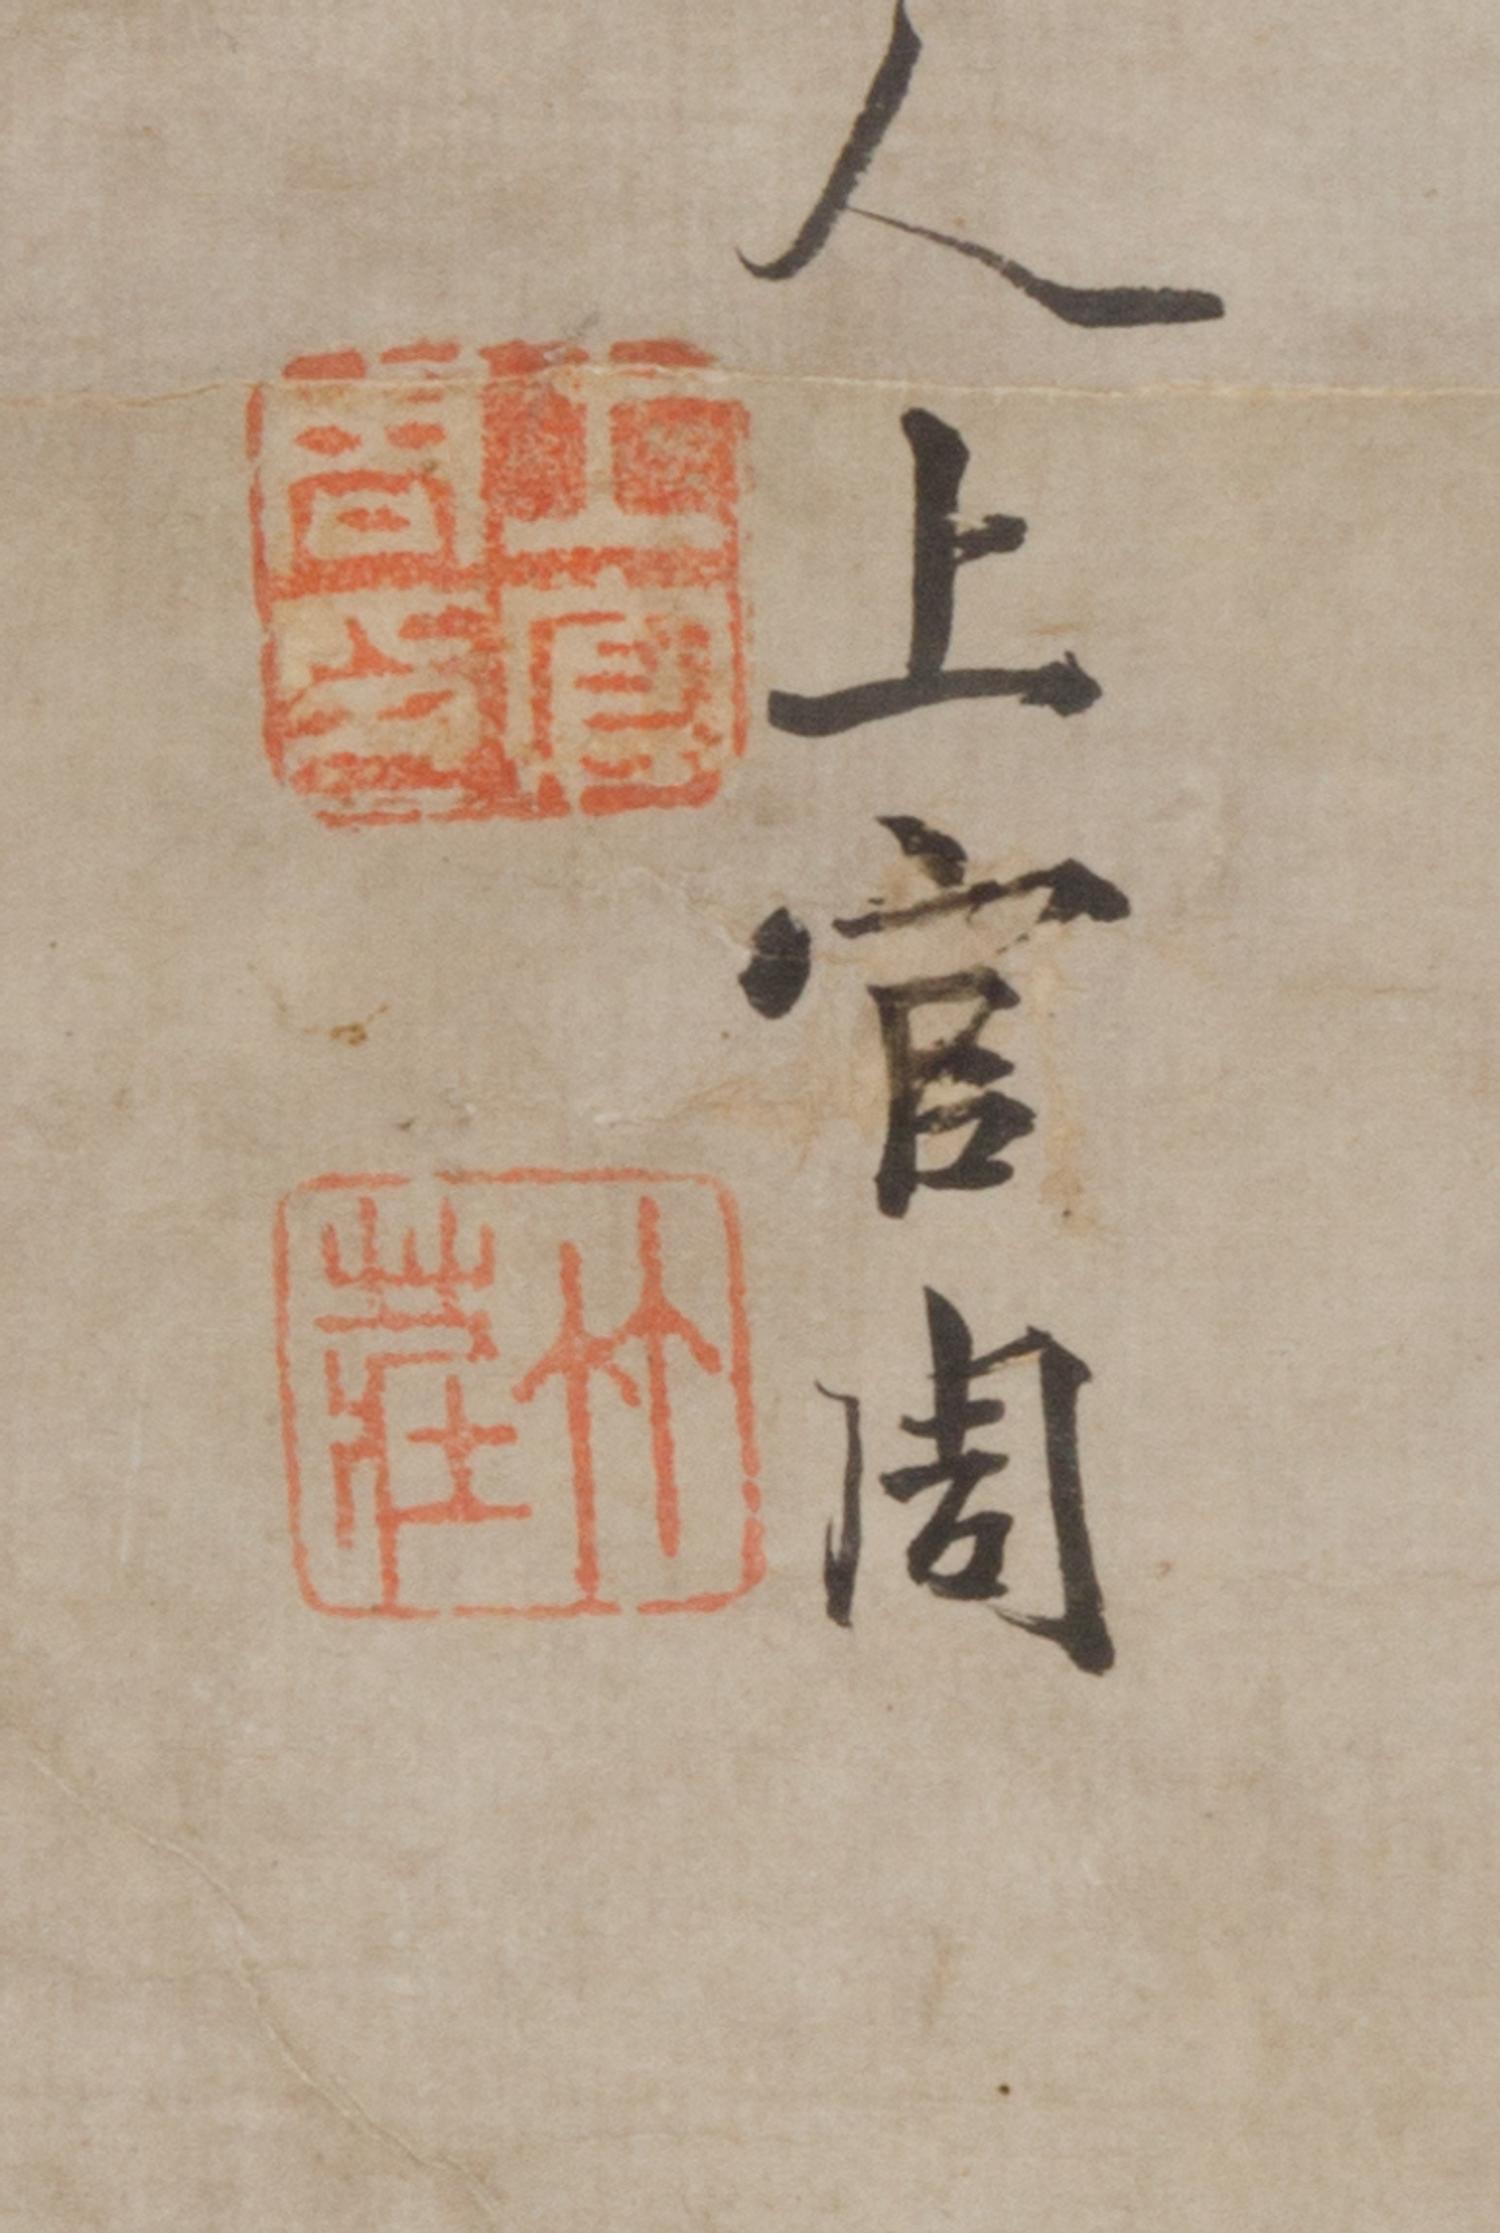 人上官周
上官周印
竹莊